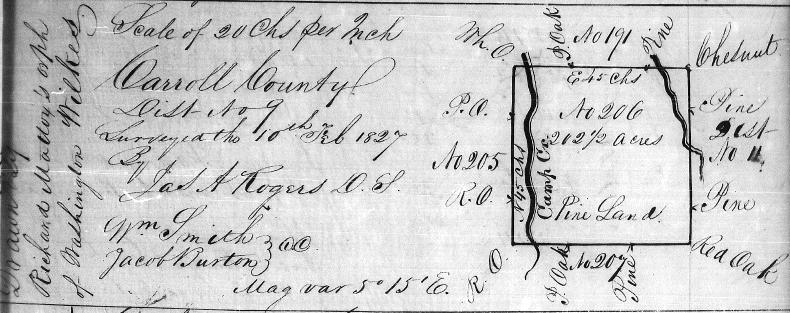 Drawn by
Richard Malloy's orph
of Washington Wilkes
Scale of 20 Chs per Inch
Carroll County
Dist No 9
Surveyed the 10th Feb 1827
By
Jas A Rogers D. S.
Wm Smith
Jacob Burton } CC
Mag var 5° 15' E.
Wh. O.
P. Oak
No 191
Pine
Chesnut
E 45 Chs
P. O.
No 206
Pine
202 1/2 Acres
Dist
No 11
No 205
N 45 Chs
Camp Cr.
R. O.
Pine Land
Pine
R O
P. Oak
No 207
Pine
Red Oak